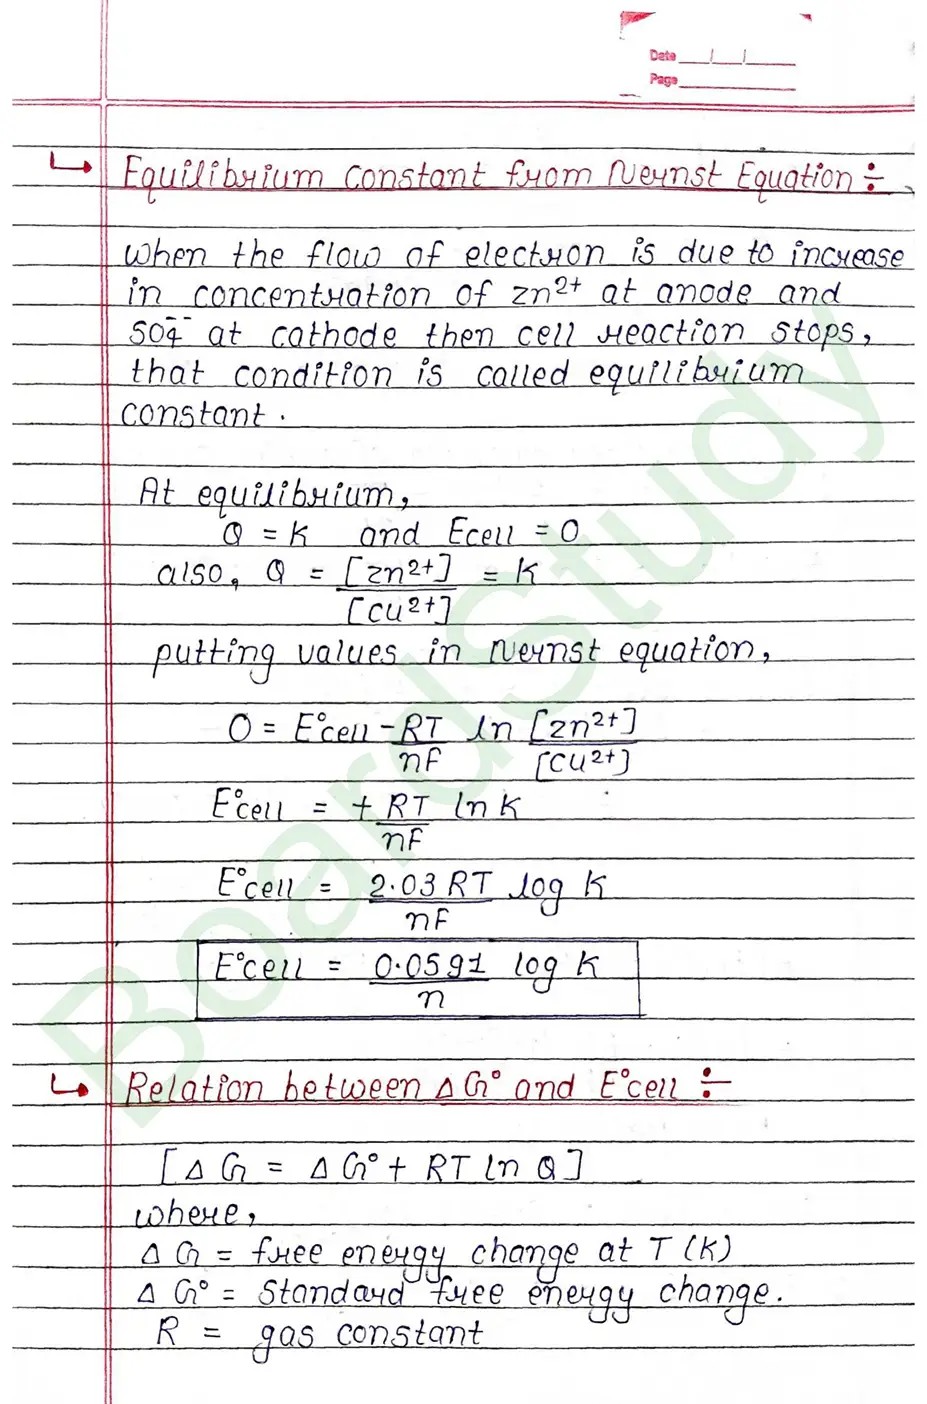 Date __/__/__
Page
↳ Equilibrium constant from Nernst Equation ÷
When the flow of electron is due to increase
in concentration of zn2+ at anode and
SO4-- at cathode then cell reaction stops,
that condition is called equilibrium
constant.
At equilibrium,
Q = K and Ecell = 0
also, Q = [zn2+] / [cu2+] = K
putting values in Nernst equation,
0 = E°cell - RT/nF ln [zn2+]/[cu2+]
E°cell = + RT/nF ln K
E°cell = 2.03 RT/nF log K
E°cell = 0.0591/n log K
↳ Relation between ΔG° and E°cell ÷
[ΔG = ΔG° + RT ln Q]
where,
ΔG = free energy change at T (K)
ΔG° = Standard free energy change.
R = gas constant
BoardStudy